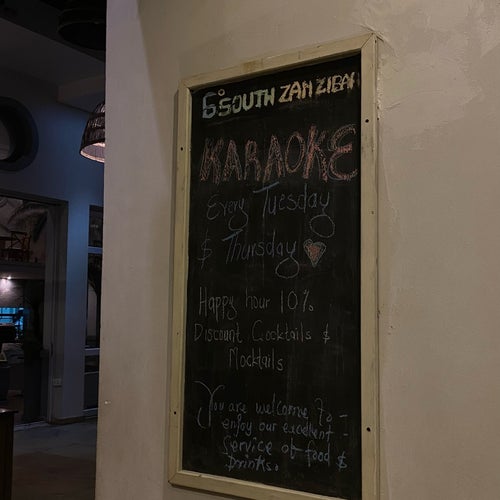 6° SOUTH ZANZIBAR
KARAOKE
Every Tuesday
& Thursday
Happy hour 10%
Discount Cocktails &
Mocktails
You are welcome To -
enjoy our excellent -
Service of food &
Drinks.